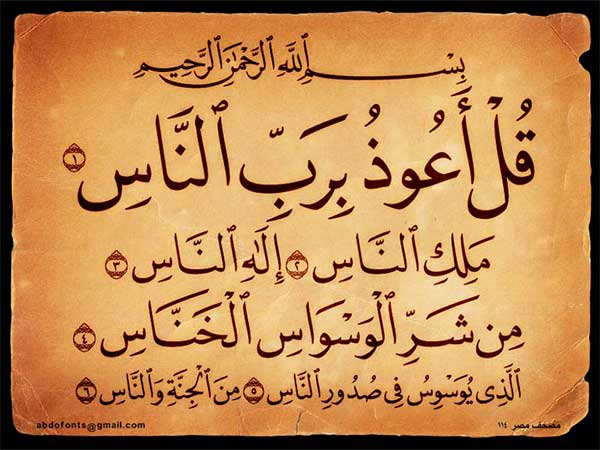 بِسْمِ ٱللَّهِ ٱلرَّحْمَٰنِ ٱلرَّحِيمِ
قُلْ أَعُوذُ بِرَبِّ ٱلنَّاسِ ١
مَلِكِ ٱلنَّاسِ ٢ إِلَٰهِ ٱلنَّاسِ ٣
مِن شَرِّ ٱلْوَسْوَاسِ ٱلْخَنَّاسِ ٤
ٱلَّذِى يُوَسْوِسُ فِى صُدُورِ ٱلنَّاسِ ٥ مِنَ ٱلْجِنَّةِ وَٱلنَّاسِ ٦
مصحف مصر ١١٤
abdofonts@gmail.com